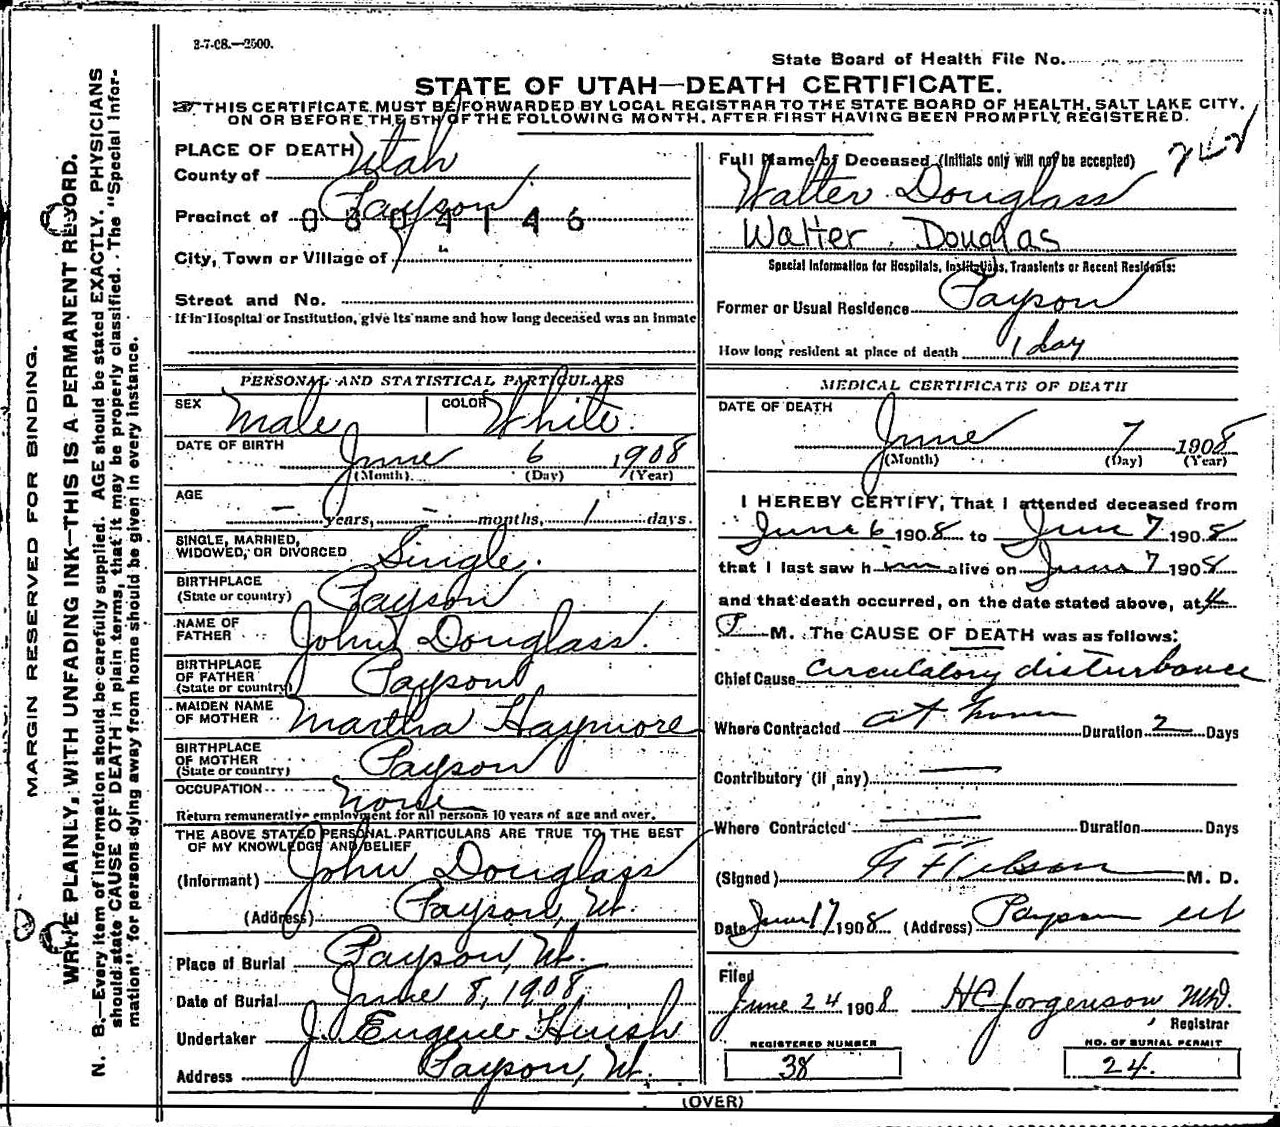 3-7-08.—2500.
State Board of Health File No.
STATE OF UTAH—DEATH CERTIFICATE.
THIS CERTIFICATE MUST BE FORWARDED BY LOCAL REGISTRAR TO THE STATE BOARD OF HEALTH, SALT LAKE CITY,
ON OR BEFORE THE 5TH OF THE FOLLOWING MONTH, AFTER FIRST HAVING BEEN PROMPTLY REGISTERED.
MARGIN RESERVED FOR BINDING.
WRITE PLAINLY, WITH UNFADING INK—THIS IS A PERMANENT RECORD.
N. B.—Every item of information should be carefully supplied. AGE should be stated EXACTLY. PHYSICIANS
should state CAUSE OF DEATH in plain terms, that it may be properly classified. The "Special Infor-
mation" for persons dying away from home should be given in every instance.
PLACE OF DEATH
County of Utah
Precinct of Payson
0804146
City, Town or Village of
Street and No.
If in Hospital or Institution, give its name and how long deceased was an inmate
PERSONAL AND STATISTICAL PARTICULARS
SEX Male COLOR White.
DATE OF BIRTH June 6 1908
(Month) (Day) (Year)
AGE
— years, — months, 1 days
SINGLE, MARRIED,
WIDOWED, OR DIVORCED Single.
BIRTHPLACE
(State or country) Payson
NAME OF
FATHER John Douglass.
BIRTHPLACE
OF FATHER
(State or country) Payson
MAIDEN NAME
OF MOTHER Martha Haymore
BIRTHPLACE
OF MOTHER
(State or country) Payson
OCCUPATION none
Return remunerative employment for all persons 10 years of age and over.
THE ABOVE STATED PERSONAL PARTICULARS ARE TRUE TO THE BEST
OF MY KNOWLEDGE AND BELIEF
(Informant) John Douglass
(Address) Payson, Ut.
Place of Burial Payson, Ut.
Date of Burial June 8, 1908
Undertaker J. Eugene Huish
Address Payson, Ut.
Full Name of Deceased (Initials only will not be accepted)
Walter Douglass
Walter Douglas
Special Information for Hospitals, Institutions, Transients or Recent Residents:
Former or Usual Residence Payson
How long resident at place of death 1 day
MEDICAL CERTIFICATE OF DEATH
DATE OF DEATH
June 7 1908
(Month) (Day) (Year)
I HEREBY CERTIFY, That I attended deceased from
June 6 1908 to June 7 1908
that I last saw him alive on June 7 1908
and that death occurred, on the date stated above, at 4
P M. The CAUSE OF DEATH was as follows:
Chief Cause circulatory disturbance
Where Contracted at home Duration 2 Days
Contributory (if any) —
Where Contracted — Duration Days
(Signed) M. D.
Date June 17 1908 (Address) Payson Ut
Filed
June 24 1908 HC Jorgenson, MD.
Registrar
REGISTERED NUMBER
38
NO. OF BURIAL PERMIT
24.
(OVER)